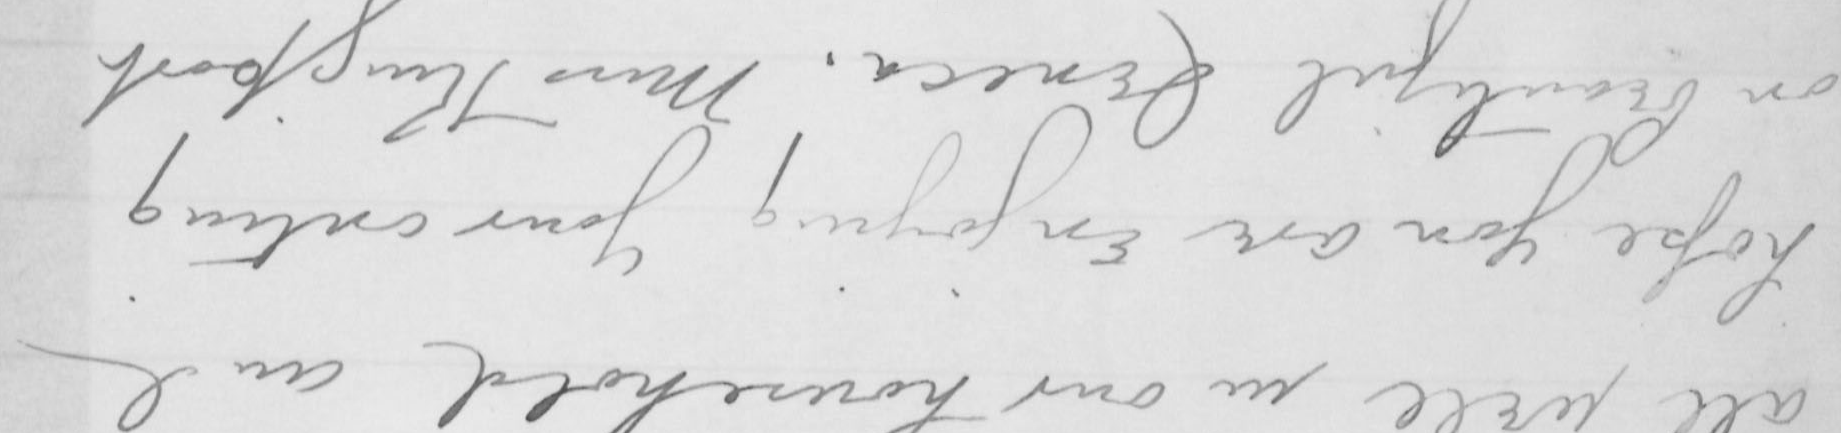 all well in our household and
hope you are Enjoying your outing
on beautiful Seneca. Miss Kingsport